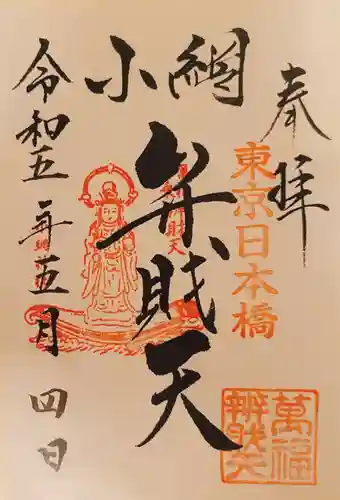 奉拝
東京日本橋
萬福
辨財天
小網
弁財天
令和五年五月四日